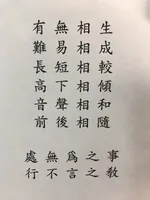 有無相生
難易相成
長短相較
高下相傾
音聲相和
前後相隨
處無爲之事
行不言之教